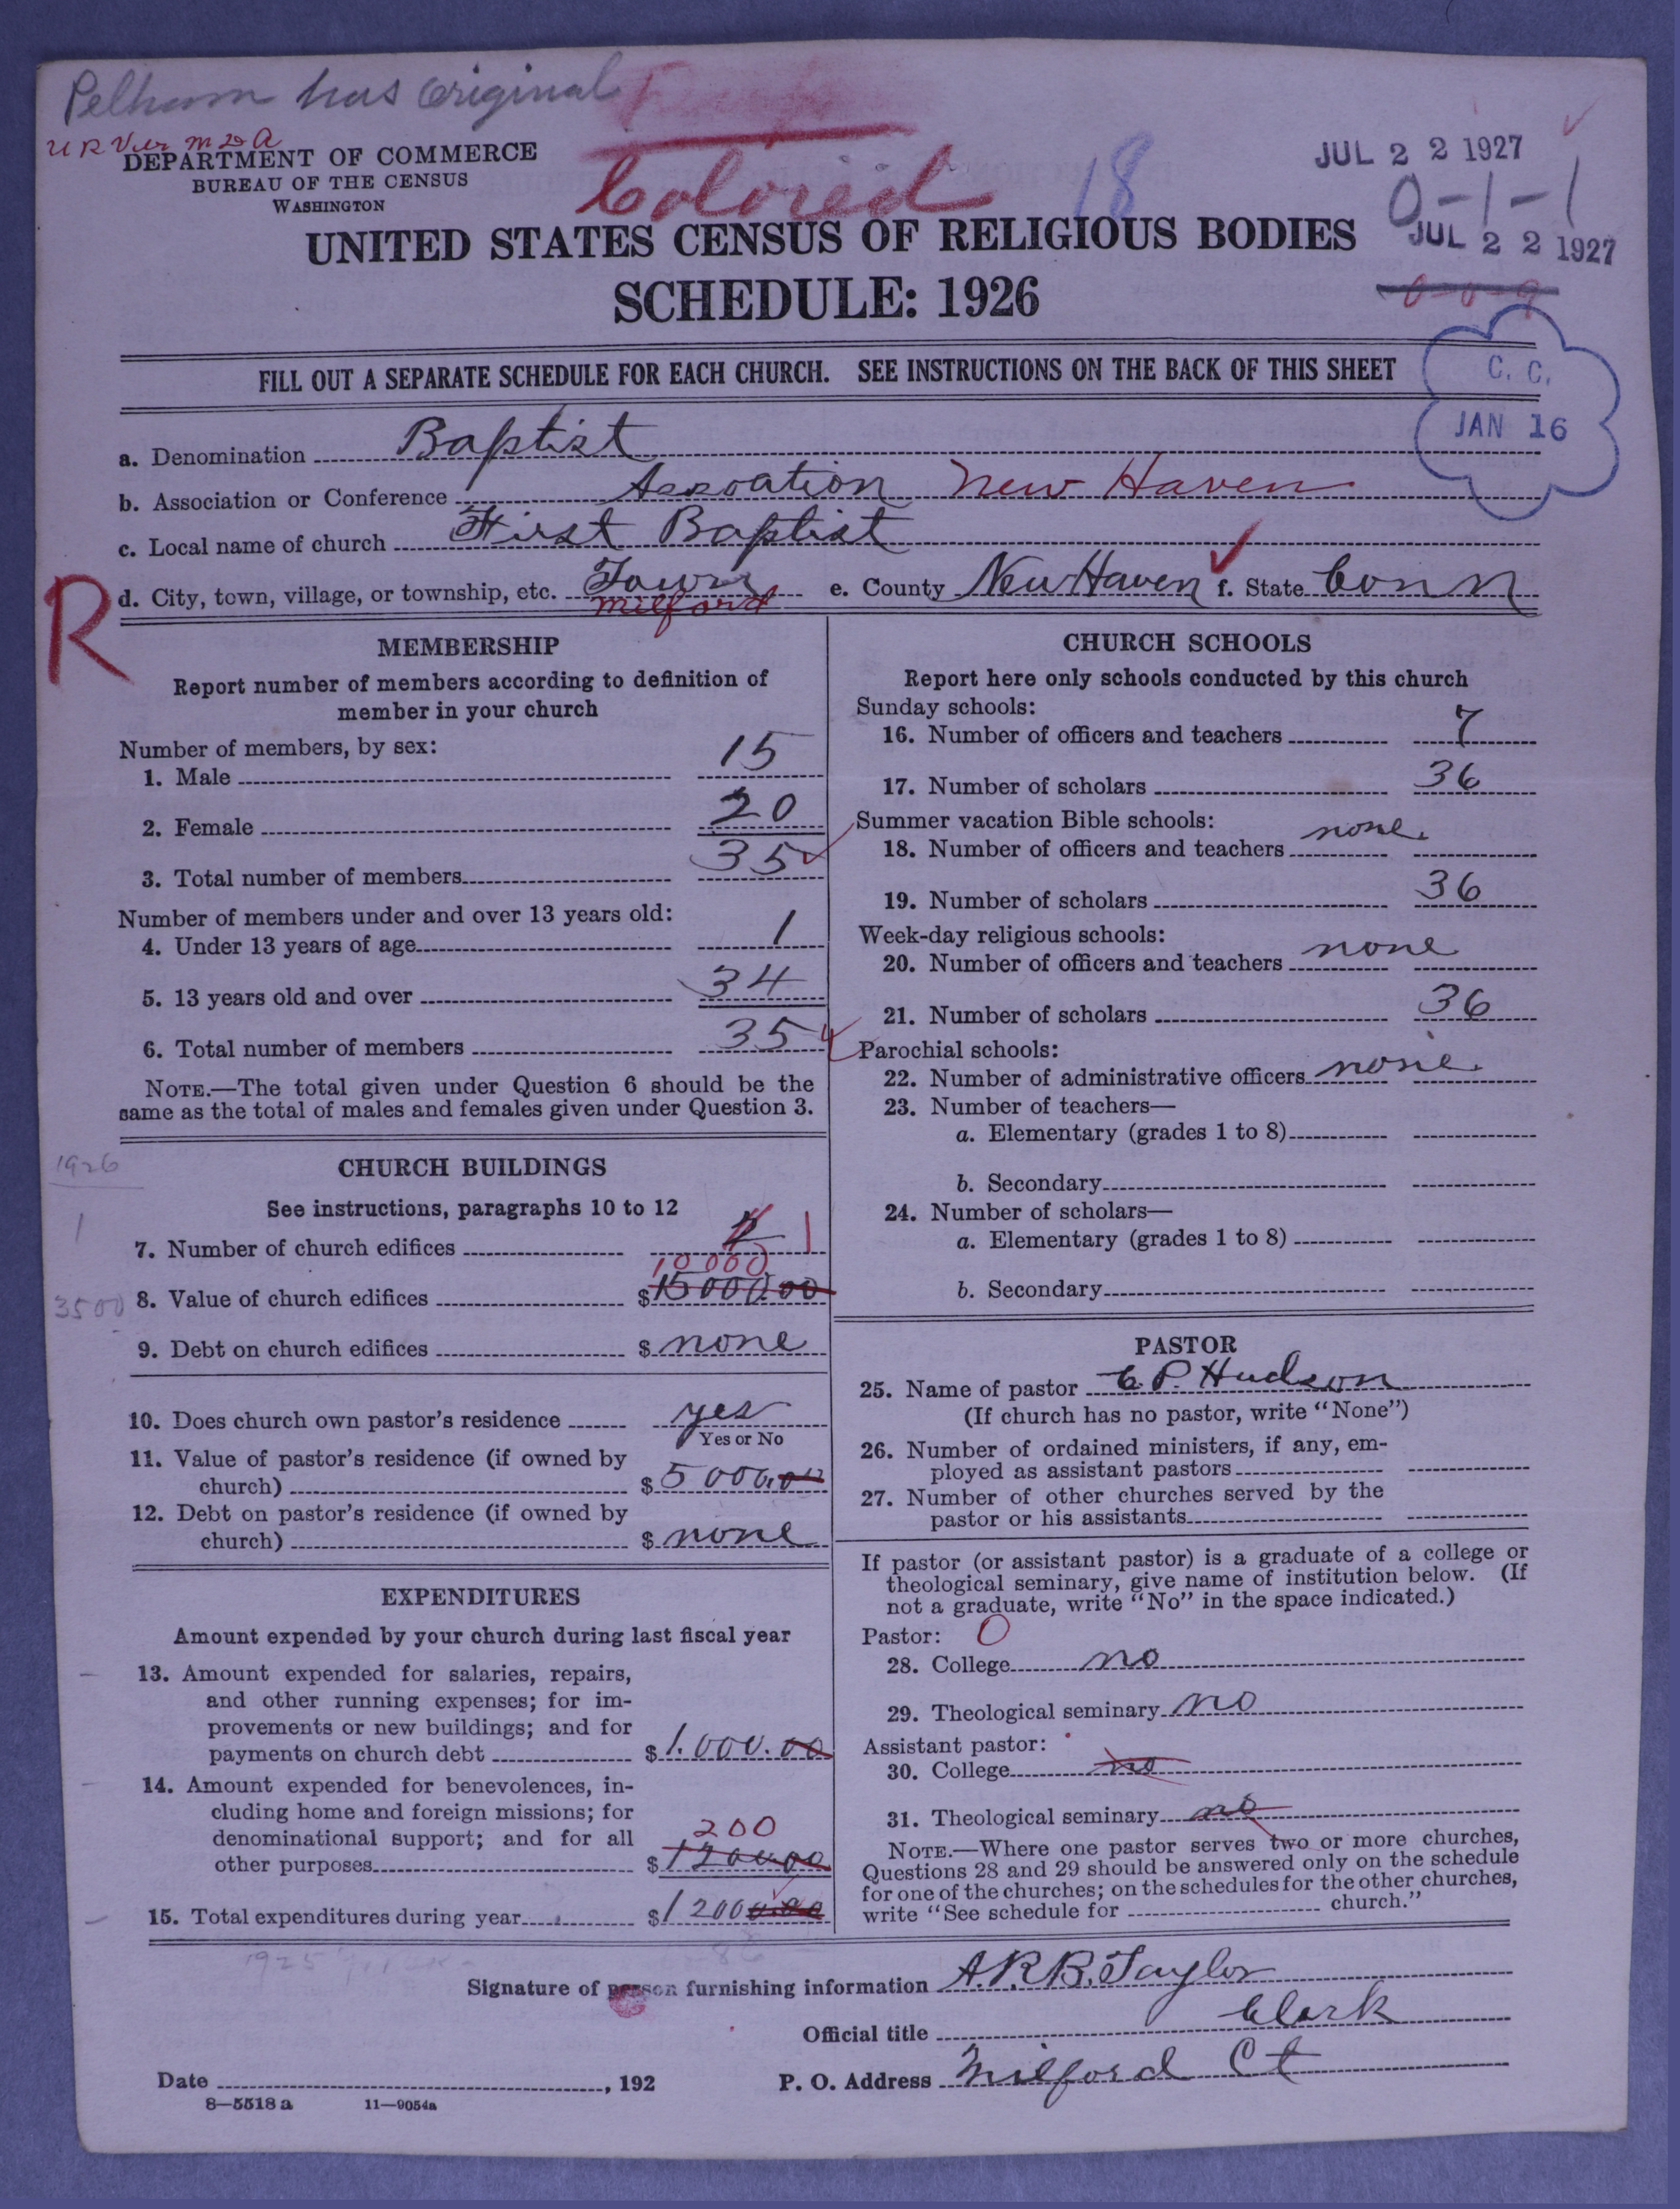 Pelham has Original
DEPARTMENT OF COMMERCE
BUREAU OF THE CENSUS
WASHINGTON
Colored
18
JUL 22 1927
0-1-1
JUL 22 1927
0-0-9
UNITED STATES CENSUS OF RELIGIOUS BODIES
SCHEDULE: 1926
FILL OUT A SEPARATE SCHEDULE FOR EACH CHURCH. SEE INSTRUCTIONS ON THE BACK OF THIS SHEET
C. C.
JAN 16
a. Denomination Baptist
b. Association or Conference Assoation New Haven
c. Local name of church First Baptist
d. City, town, village, or township, etc. Town Milford e. County New Haven f. State Conn
R
MEMBERSHIP
Report number of members according to definition of
member in your church
Number of members, by sex:
1. Male 15
2. Female 20
3. Total number of members 35
Number of members under and over 13 years old:
4. Under 13 years of age 1
5. 13 years old and over 34
6. Total number of members 35
NOTE.—The total given under Question 6 should be the
same as the total of males and females given under Question 3.
1926
CHURCH BUILDINGS
See instructions, paragraphs 10 to 12
1
7. Number of church edifices 1
10000
3500
8. Value of church edifices $15000.00
9. Debt on church edifices $none
10. Does church own pastor's residence yes
Yes or No
11. Value of pastor's residence (if owned by
church) $5000.00
12. Debt on pastor's residence (if owned by
church) $none
EXPENDITURES
Amount expended by your church during last fiscal year
13. Amount expended for salaries, repairs,
and other running expenses; for im-
provements or new buildings; and for
payments on church debt $1.000.00
14. Amount expended for benevolences, in-
cluding home and foreign missions; for
denominational support; and for all
200
other purposes $1200.00
15. Total expenditures during year $1200
CHURCH SCHOOLS
Report here only schools conducted by this church
Sunday schools:
16. Number of officers and teachers 7
17. Number of scholars 36
Summer vacation Bible schools:
18. Number of officers and teachers none
19. Number of scholars 36
Week-day religious schools:
20. Number of officers and teachers none
21. Number of scholars 36
Parochial schools:
22. Number of administrative officers none
23. Number of teachers—
a. Elementary (grades 1 to 8)
b. Secondary
24. Number of scholars—
a. Elementary (grades 1 to 8)
b. Secondary
PASTOR
25. Name of pastor C. P. Hudson
(If church has no pastor, write "None")
26. Number of ordained ministers, if any, em-
ployed as assistant pastors
27. Number of other churches served by the
pastor or his assistants
If pastor (or assistant pastor) is a graduate of a college or
theological seminary, give name of institution below. (If
not a graduate, write "No" in the space indicated.)
Pastor: 0
28. College no
29. Theological seminary no
Assistant pastor:
30. College no
31. Theological seminary no
NOTE.—Where one pastor serves two or more churches,
Questions 28 and 29 should be answered only on the schedule
for one of the churches; on the schedules for the other churches,
write "See schedule for church."
1925
Signature of person furnishing information A.R.B. Taylor
Official title Clark
Date , 192
P. O. Address Milford Ct
8—5518 a 11—9054a